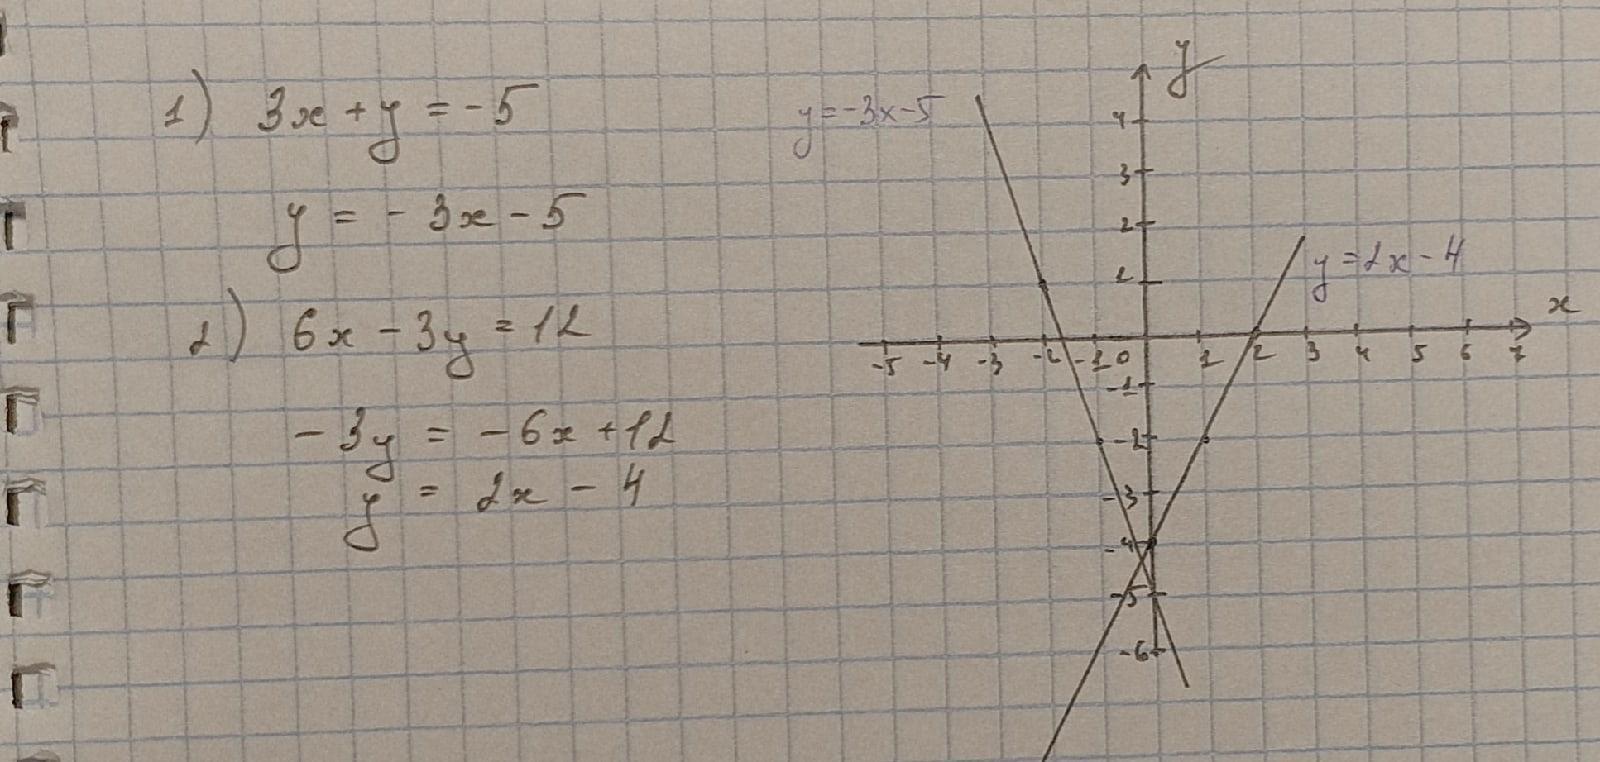 1) 3x + y = -5
y = - 3x - 5
2) 6x - 3y = 12
- 3y = - 6x + 12
y = 2x - 4
y
y = -3x - 5
4
3
2
1
y = 2x - 4
x
-5 -4 -3 -2 -1 0 1 2 3 4 5 6 7
-1
-2
-3
-4
-5
-6